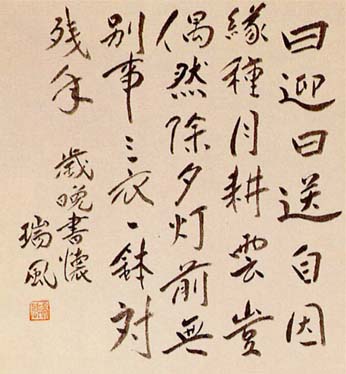 日迎日送自因
縁種月耕雲豈
偶然除夕灯前無
別事三衣一鉢対
残年
歳晩書懐
瑞風